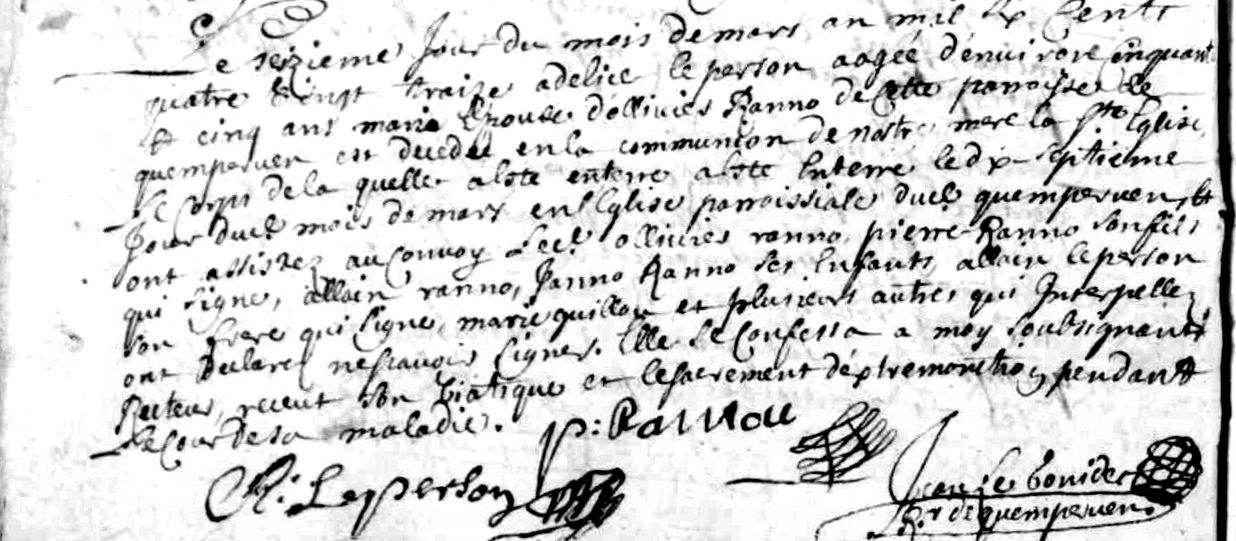 Le seizieme Jour du mois de mars an mil six Cents
quatre Vingt traize adelice le person aagée d'environ cinquant
et cinq ans marie Epouse d'ollivier Ranno de cette parroisse de
quemperven est decedee en la communion de nostre mere la Ste Eglise,
le Corps de la quelle a este enterre a este Enterre le dix-septieme
Jour dud. mois de mars en l'Eglise parroissiale dud. quemperven, Et
ont assistez au Convoy led. ollivier ranno, pierre Ranno son fils
qui signe, allain ranno, Janno Ranno ses Enfants, allain le person
son frere qui signe, marie guillou et plusieurs autres qui Interpellez
ont declarez ne scavoir signer. Elle se Confessa a moy soubsignant
Recteur, receut son Viatique et le sacrement d'extremonction pendant
le Cour de sa maladie.
p: Rannou
A: Leperson
Jean le bonider
R.r de quemperven.